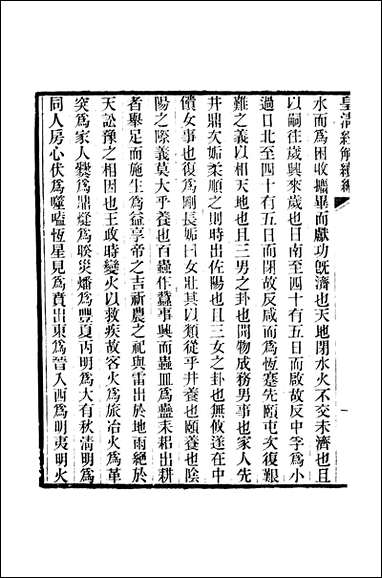 皇清經解續編
水而爲困收攟畢而獻功旣濟也天地閉水火不交未濟也且
以嗣往歲興來歲也日南至四十有五日而啟故反中孚爲小
過日北至四十有五日而閉故反咸而爲恆蹇先頤屯次復艱
難之義以相天地也且三男之卦也開物成務男事也家人先
井鼎次姤柔順之則時出佐陽也且三女之卦也無攸遂在中
饋女事也復爲剛長姤曰女壯其以類從乎井養也頤養也陰
陽之際義莫大乎養也百蟲作蠶事興而蟲皿爲蠱耒耜出耕
者舉足而施生爲益享帝之吉祈農之祀與雷出於地雨絶於
天訟豫之相因也王政時變火以救疾故客火爲旅冶火爲革
突爲家人爨爲鼎燧爲睽災燔爲豐夏丙明爲大有秋清明爲
同人房心伏爲噬嗑恆星見爲賁出東爲晉入西爲明夷明火
一